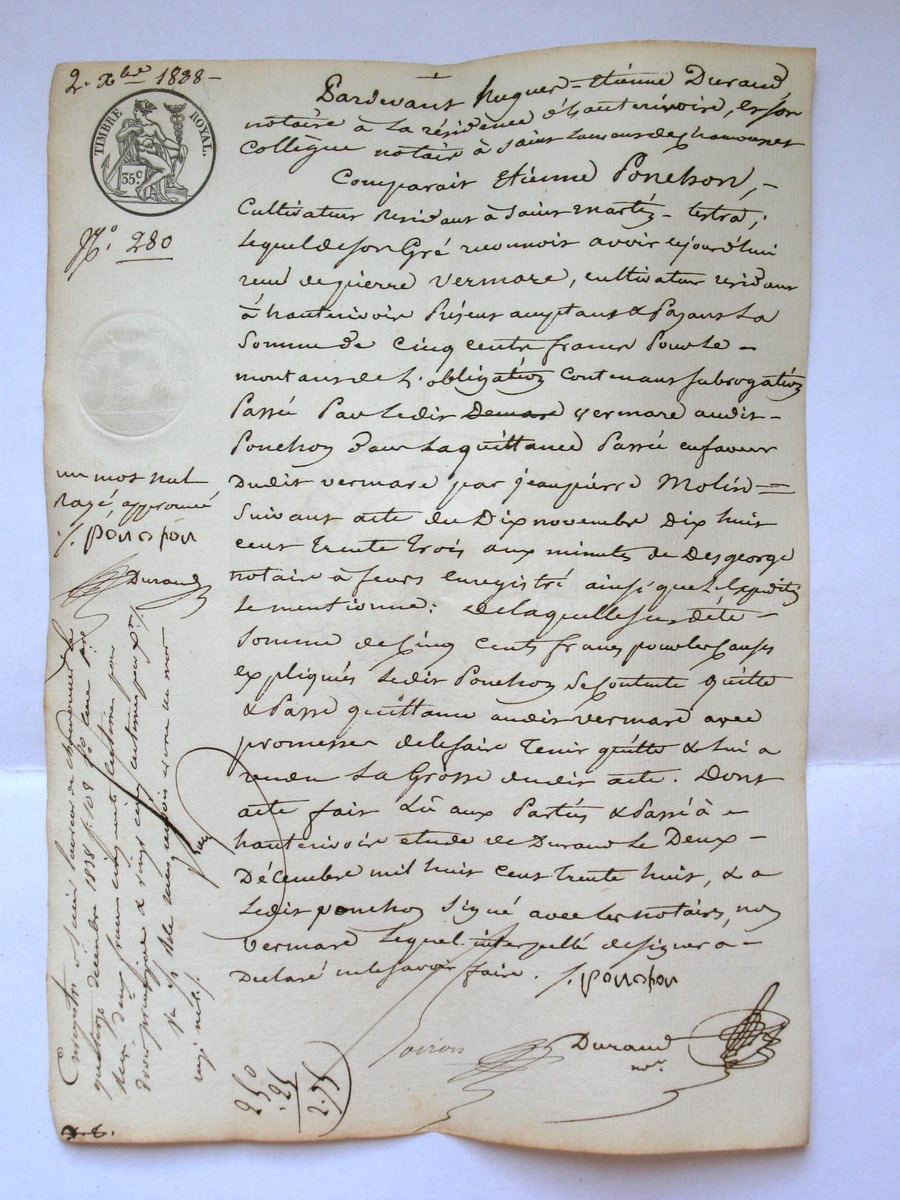 2. Xbre 1838 -
TIMBRE ROYAL.
35 c.
No. 280
Pardevant hugues-Etiénne Durand
notaire à la résidence d'hauterivoire, et son
Collegue notaire à saint Laurans de chamousset
Comparait Etiénne Ponchon, -
Cultivateur residant à saint martin - lestra;
lequel de son Gré reconnoit avoir cejourd'hui
recu de pierre vermare, cultivateur residant
à hauterivoir présent acceptant & Payant La
Somme de cinq cents francs Pour le -
montant de L'obligation contenant subrogation
Passée Par ledit Demare vermare audit -
Ponchon Par la quittance Passée en faveur
dudit vermare par jean pierre Molin =
Suivant acte du Dix novembre dix huit
cent trente trois aux minutes de Desgeorge
notaire à feurs enregistré ainsi que L'Expedition
le mentionne: de laquelle susdite -
somme de Cinq Cents francs pour les causes
expliqués ledit Ponchon se Contente quitte
& Passe quittance audit vermare avec
promesse de le faire tenir quitte & lui a
rendu La Grosse dudit acte. Dont
acte fait Lu aux Parties & Passé à
hauterivoir etude de Durand Le Deux -
Décembre mil huit cent trente huit, & a
ledit ponchon signé avec les notaires, non
vermare lequel interpellé de signer a -
Declaré ne le savoir faire. /. ponchon
Durand
nore.
un mot nul
rayé, approuvé
/. ponchon
Durand
Enregistré à saint Laurent de chamousset le
quatorze decembre 1838 fo 108
deux francs cinquante centimes